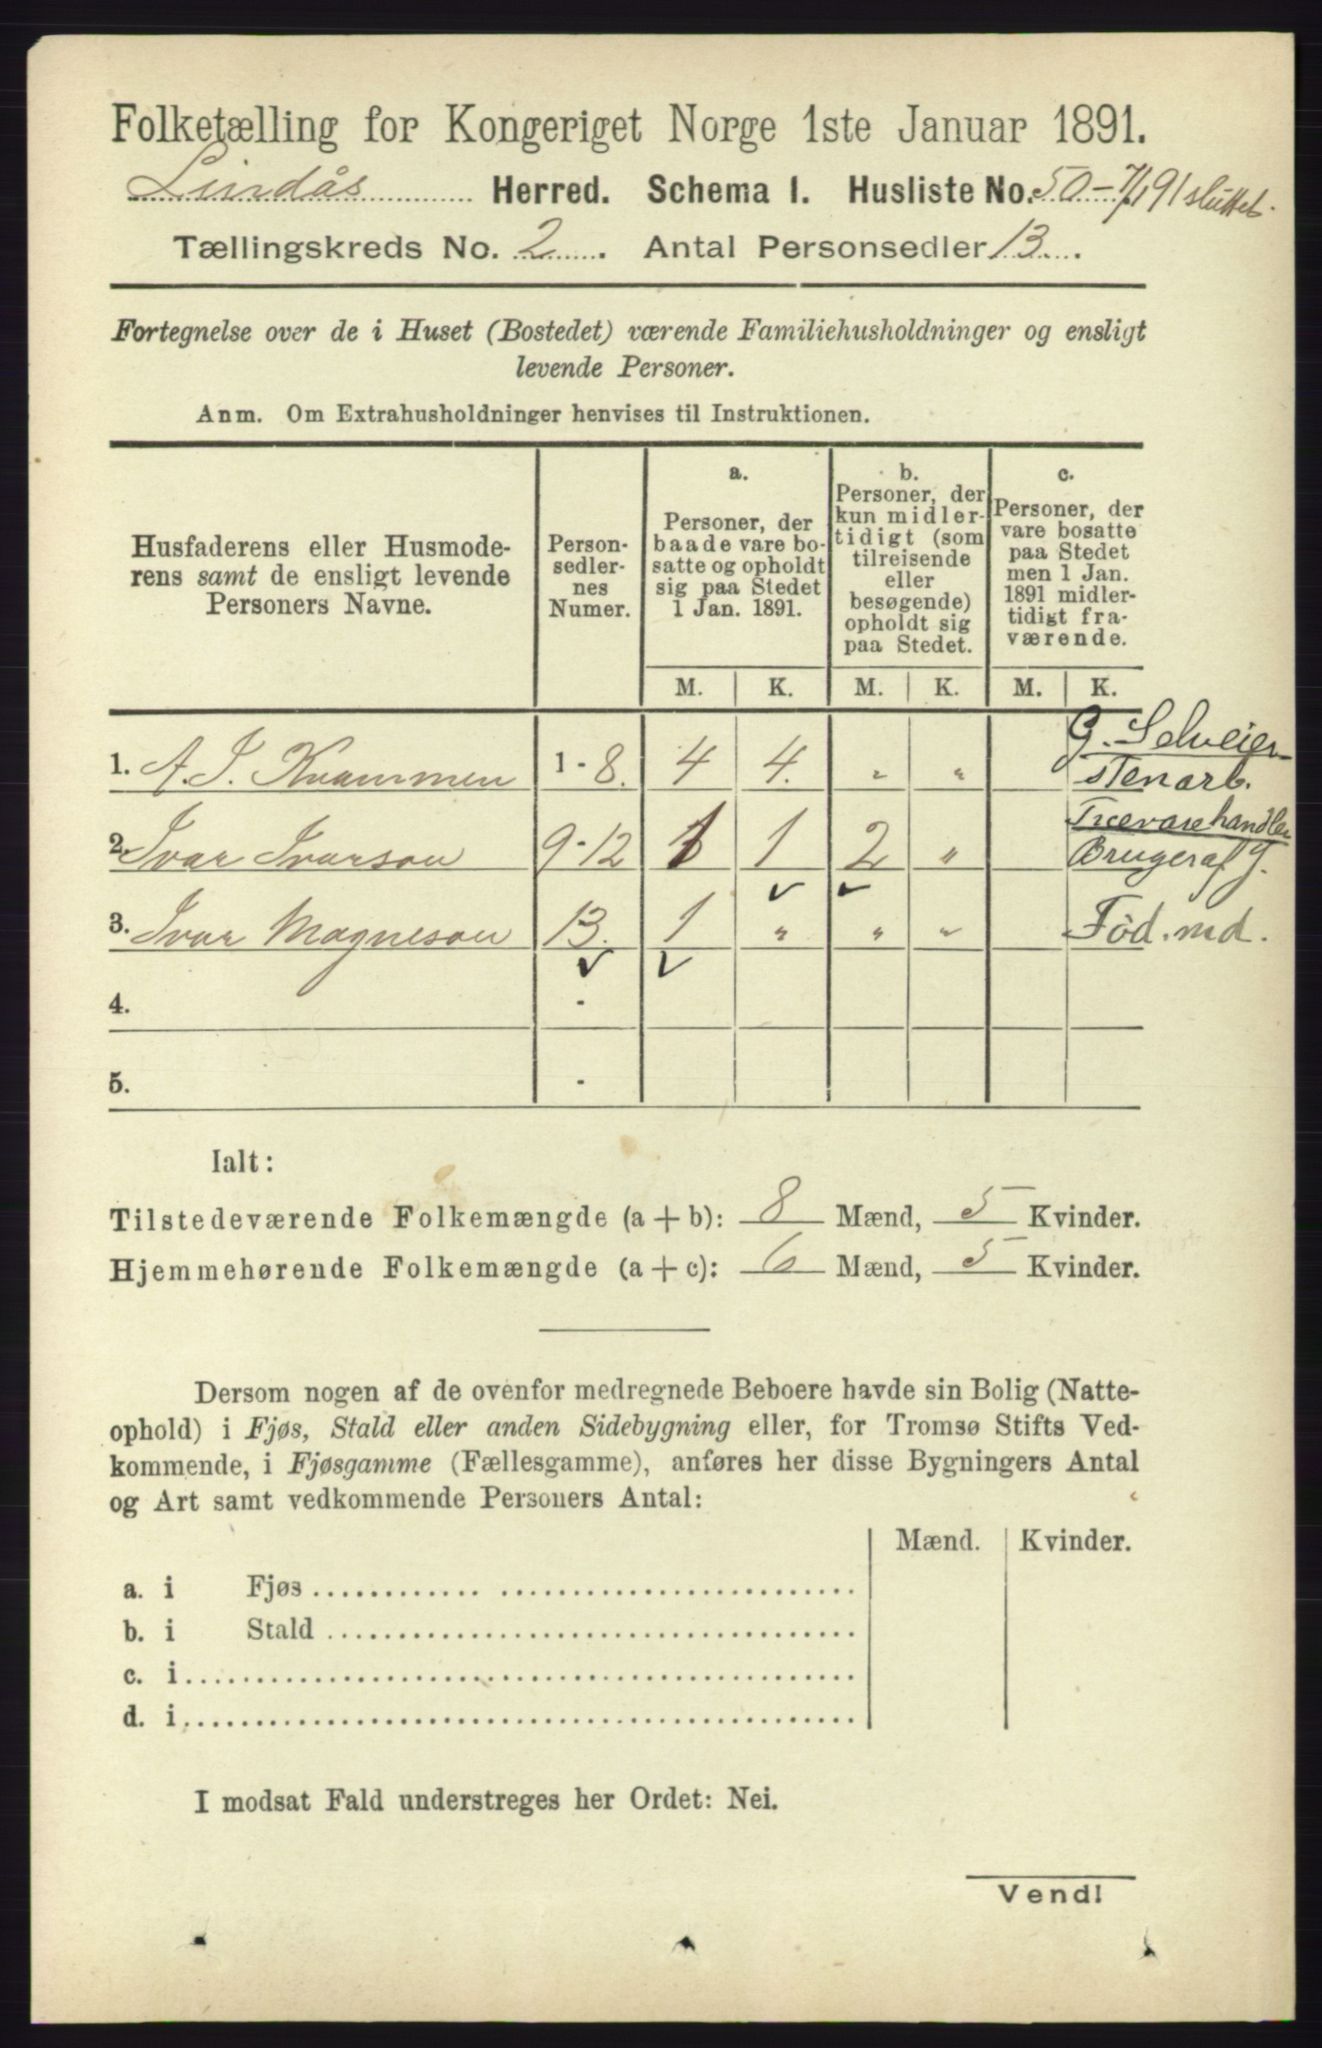 Folketælling for Kongeriget Norge 1ste Januar 1891.
Lindås Herred. Schema 1. Husliste No. 50 - 7/1 91 sluttet.
Tællingskreds No. 2. Antal Personsedler 13.
Fortegnelse over de i Huset (Bostedet) værende Familiehusholdninger og ensligt
levende Personer.
Anm. Om Extrahusholdninger henvises til Instruktionen.
Husfaderens eller Husmode-
rens samt de ensligt levende
Personers Navne.
Person-
sedler-
nes
Numer.
a.
Personer, der
baade vare bo-
satte og opholdt
sig paa Stedet
1 Jan. 1891.
b.
Personer, der
kun midler-
tidigt (som
tilreisende
eller
besøgende)
opholdt sig
paa Stedet.
c.
Personer, der
vare bosatte
paa Stedet
men 1 Jan.
1891 midler-
tidigt fra-
værende.
M. K. M. K. M. K.
G. Selveier
1. A. I. Kvammen 1 - 8. 4 4. " " stenarb.
Trævarehandler
2. Ivar Ivarson 9 - 12 1 1 2 " Bruger af G.
3. Ivar Magneson 13. 1 " " " Föd. md.
4. -
5. -
Ialt:
Tilstedeværende Folkemængde (a + b): 8 Mænd, 5 Kvinder.
Hjemmehørende Folkemængde (a + c): 6 Mænd, 5 Kvinder.
Dersom nogen af de ovenfor medregnede Beboere havde sin Bolig (Natte-
ophold) i Fjøs, Stald eller anden Sidebygning eller, for Tromsø Stifts Ved-
kommende, i Fjøsgamme (Fællesgamme), anføres her disse Bygningers Antal
og Art samt vedkommende Personers Antal:
Mænd. Kvinder.
a. i Fjøs
b. i Stald
c. i
d. i
I modsat Fald understreges her Ordet: Nei.
Vend!